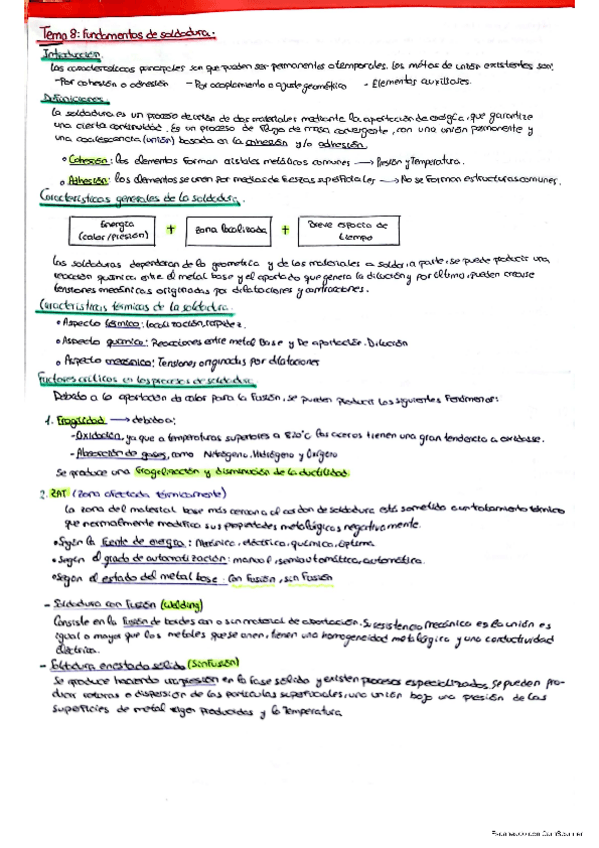 Tema 8: Fundamentos de soldadura.
Introducción.
Las características principales son que pueden ser permanentes o temporales. Los métodos de unión existentes son:
-Por cohesión o adhesión -Por acoplamiento o ajuste geométrico - Elementos auxiliares.
Definiciones.
La soldadura es un proceso de unión de dos materiales mediante la aportación de energía, que garantize
una cierta continuidad. Es un proceso de flujo de masa convergente, con una unión permanente y
una coalescencia (unión) basada en la cohesión y/o adhesión.
• Cohesión: los elementos forman cristales metálicos comunes → Presión y Temperatura.
• Adhesión: los elementos se unen por medios de fuerzas superficiales → No se forman estructuras comunes.
Características generales de la soldadura.
Energía (calor/presión) + Zona localizada + Breve espacio de tiempo
Las soldaduras dependeran de la geometría y de los materiales a soldar, a parte, se puede producir una
reacción química entre el metal base y el aportado que genera la dilución y por último, pueden crearse
tensiones mecánicas originadas por dilataciones y contracciones.
Características térmicas de la soldadura.
• Aspecto térmico: localización, rapidez.
• Aspecto químico: Reacciones entre metal Base y De aportación. Dilución
• Aspecto mecánico: Tensiones originadas por dilataciones
Factores críticos en los procesos de soldadura
Debido a la aportación de calor para la fusión, se pueden producir los siguientes fenómenos:
1. Fragilidad → debido a:
-Oxidación, ya que a temperaturas superiores a 820°C los aceros tienen una gran tendencia a oxidarse.
-Absorción de gases, como Nitrógeno, Hidrógeno y Oxígeno
Se produce una fragelinación y disminución de la ductilidad
2. ZAT (Zona afectada térmicamente)
La zona del material base más cercana al cordón de soldadura está sometida a un tratamiento térmico
que normalmente modifica sus propiedades metalógicas negativamente.
• Según la fuente de energía: Mecánica, eléctrica, química, óptima
• Según el grado de automatización: manual, semiautomática, automática.
• Según el estado del metal base: con fusión, sin fusión
- Soldadura con fusión (Welding)
Consiste en la fusión de bordes con o sin material de aportación. Su resistencia mecánica es la unión es
igual o mayor que los metales que se unen, tienen una homogeneidad metalógica y una conductividad
eléctrica.
- Soldadura en estado sólido (Sin fusión)
Se produce haciendo una presión en la fase sólida y existen procesos especializados. Se pueden pro-
ducir roturas o dispersión de las partículas superficiales, una unión bajo una presión de las
superficies de metal producidas y la temperatura
Escaneado con CamScanner